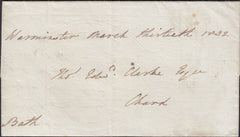 Warminster March thirtieth 1832
Thos Edwd. Clarke Esqre
Chard
Bath